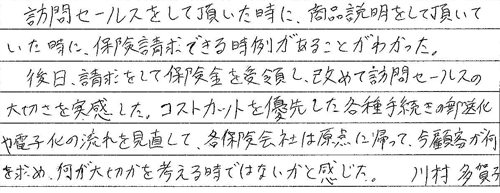 訪問セールスをして頂いた時に、商品説明をして頂いて
いた時に、保険請求できる時例があることがわかった。
後日、請求をして保険金を受領し、改めて訪問セールスの
大切さを実感した。コストカットを優先した各種手続きの郵送化
や電子化の流れを見直して、各保険会社は原点に帰って、今顧客が何
を求め、何が大切かを考える時ではないかと感じた。 川村 多賀